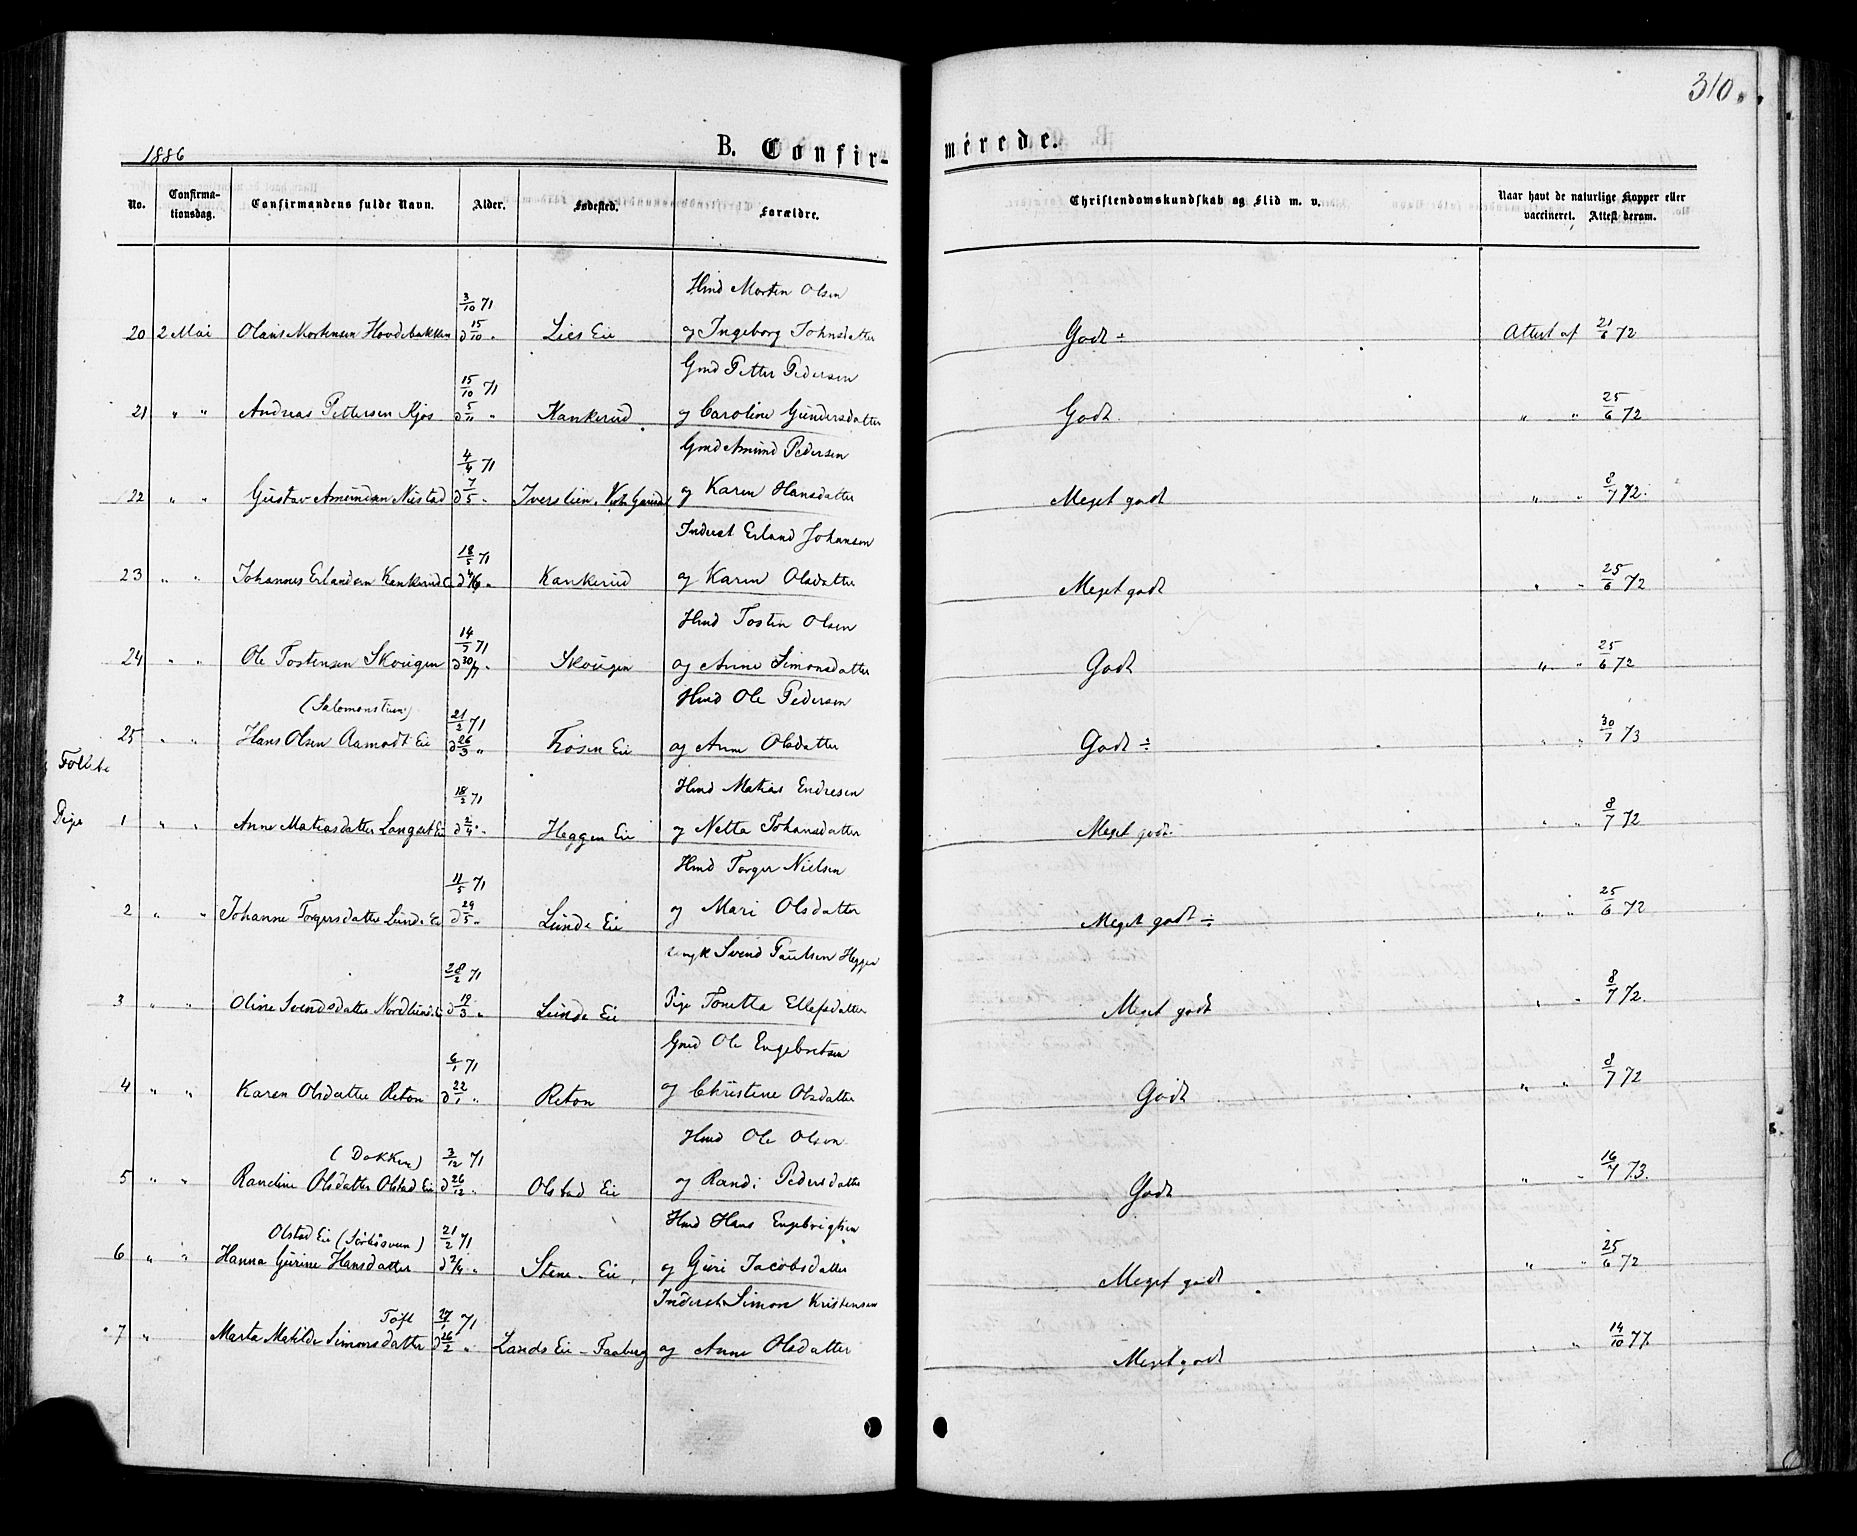 310.
1886
B. Confir-
mérede.
No. Confirma-tionsdag. Confirmandens fulde Navn. Alder. Fødested. Forældre. Christendomskundskab og Flid m. v. Naar havt de naturlige Kopper eller vaccineret. Attest derom.
3/10 71 Hmd Morten Olsen
20 2 Mai Olaus Mortensen Hovdebakken d 15/10 " Lies Eie og Ingeborg Johnsdatter Godt ÷ Attest af 21/6 72
15/10 71 Gmd Petter Pedersen
21 " " Andreas Pettersen Kjos d 5/11 " Kankerud og Caroline Gundersdatter Godt " " 25/6 72
4/4 71 Gmd Amund Pedersen
22 " " Gustav Amundsen Nustad d 7/5 " Iverslien og Karen Hansdatter Meget godt " " 8/7 72.
18/5 71 Inderst Erland Johansen
23 " " Johannes Erlandsen Kankerud d 4/6 " Kankerud og Karen Olsdatter Meget godt " " 25/6 72
14/7 71 Hmd Tosten Olsen
24 " " Ole Tostensen Skougen d 30/7 " Skougen og Anne Simonsdatter Godt " " 25/6 72
(Salomonstuen) 21/2 71 Hmd Ole Pedersen
25 " " Hans Olsen Aamodt Eie d 26/3 " Frøsen Eie og Anne Olsdatter Godt ÷ " " 30/7 73
18/2 71 Hmd Matias Endresen
Pige 1 " " Anne Matiasdatter Langset Ei d 2/4 " Heggen Eie og Netta Johansdatter Meget godt " " 8/7 72
11/5 71 Hmd Torger Nielsen
2 " " Johanne Torgersdatter Lunde Ei d 29/5 " Lunde Eie og Mari Olsdatter Meget godt ÷ " " 25/6 72
28/2 71 ungk Svend Paulsen Heggen
3 " " Oline Svendsdatter Nordlunde d 19/3 " Lunde Eie Pige Tonetta Ellefsdatter Meget godt " " 8/7 72.
6/1 71 Gmd Ole Engebretsen
4 " " Karen Olsdatter Reton d 22/1 " Reton og Christine Olsdatter Godt " " 8/7 72
(Dokken) 3/12 71 Hmd Ole Olsen
5 " " Randine Olsdatter Olstad Eie d 26/12 " Olstad Eie og Randi Pedersdatter Godt " " 16/7 73.
Olstad Eie 21/2 71 Hmd Hans Engebrigtsen
6 " " Hanna Gurine Hansdatter d 2/4 " Stene Eie og Guri Jacobsdatter Meget godt " " 25/6 72
Toft 27/1 71 Inderst Simon Kristensen
7 " Marta Matilde Simonsdatter d 26/2 " Lands Eie - Faaberg og Anne Olsdatter Meget godt " " 14/10 77.